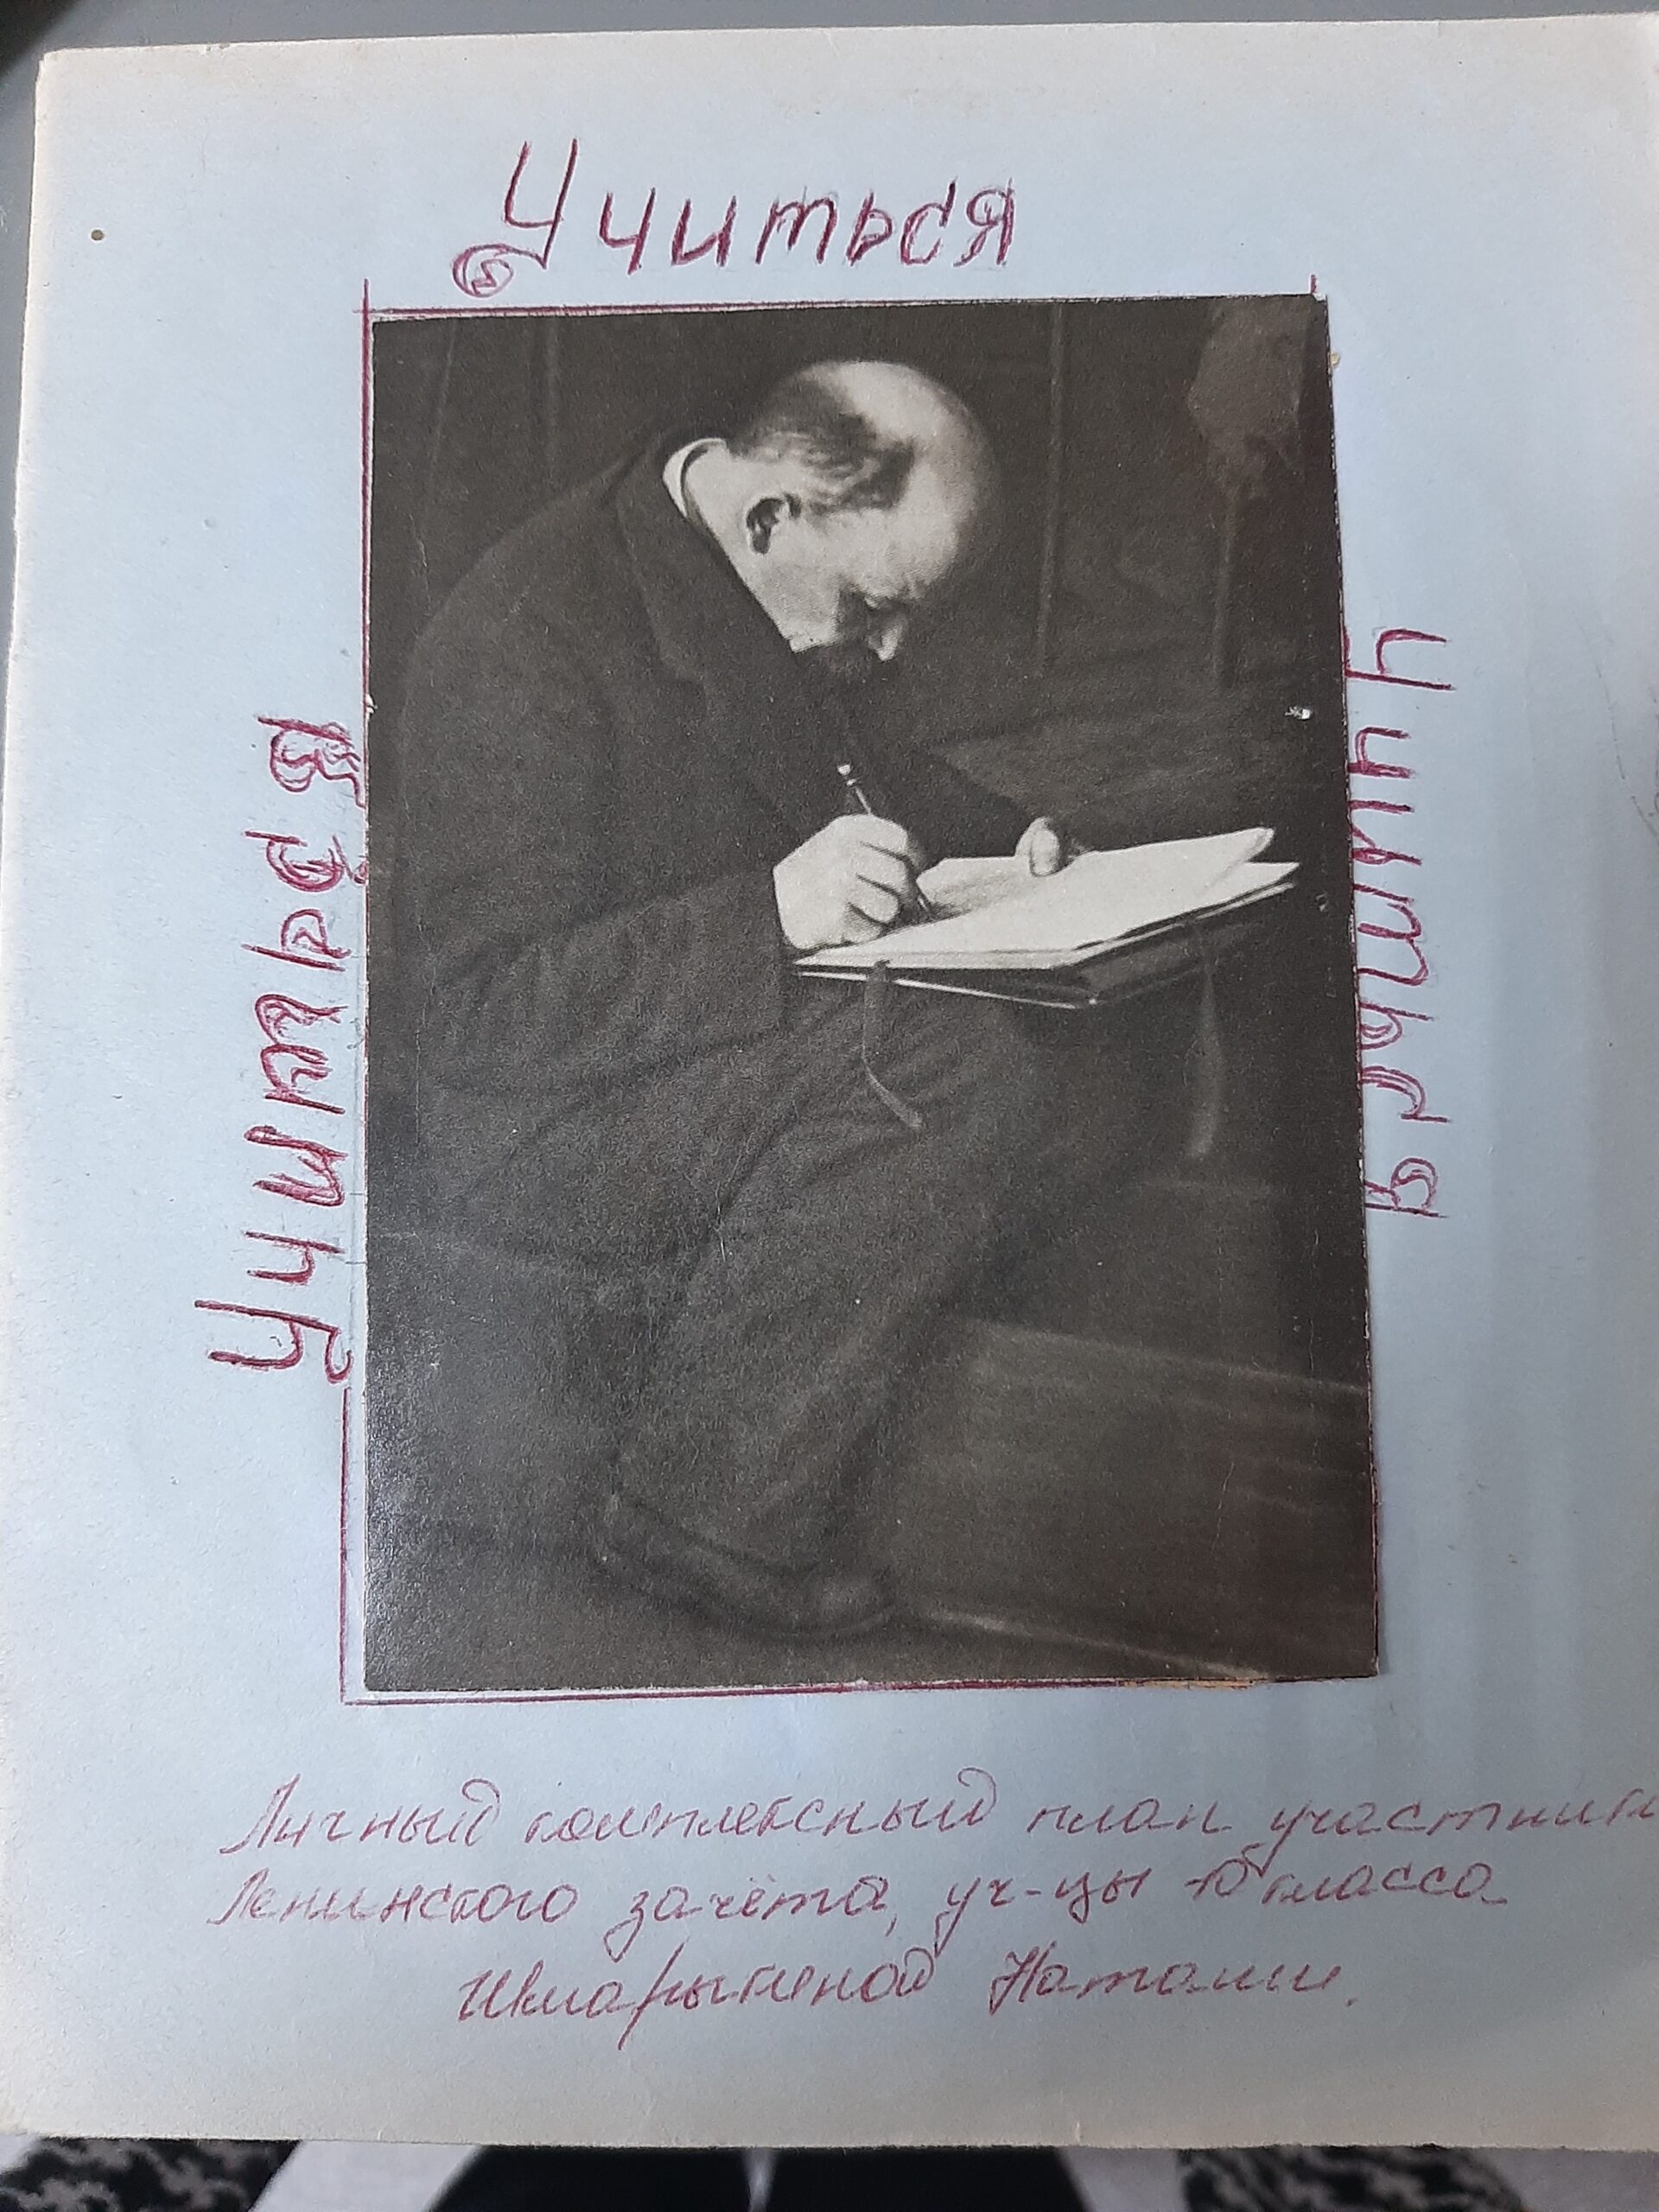 Учиться
Учиться
Учиться
Личный комплексный план участника
Ленинского зачёта, уч-цы 10 класса
Шмарыгиной Натальи.